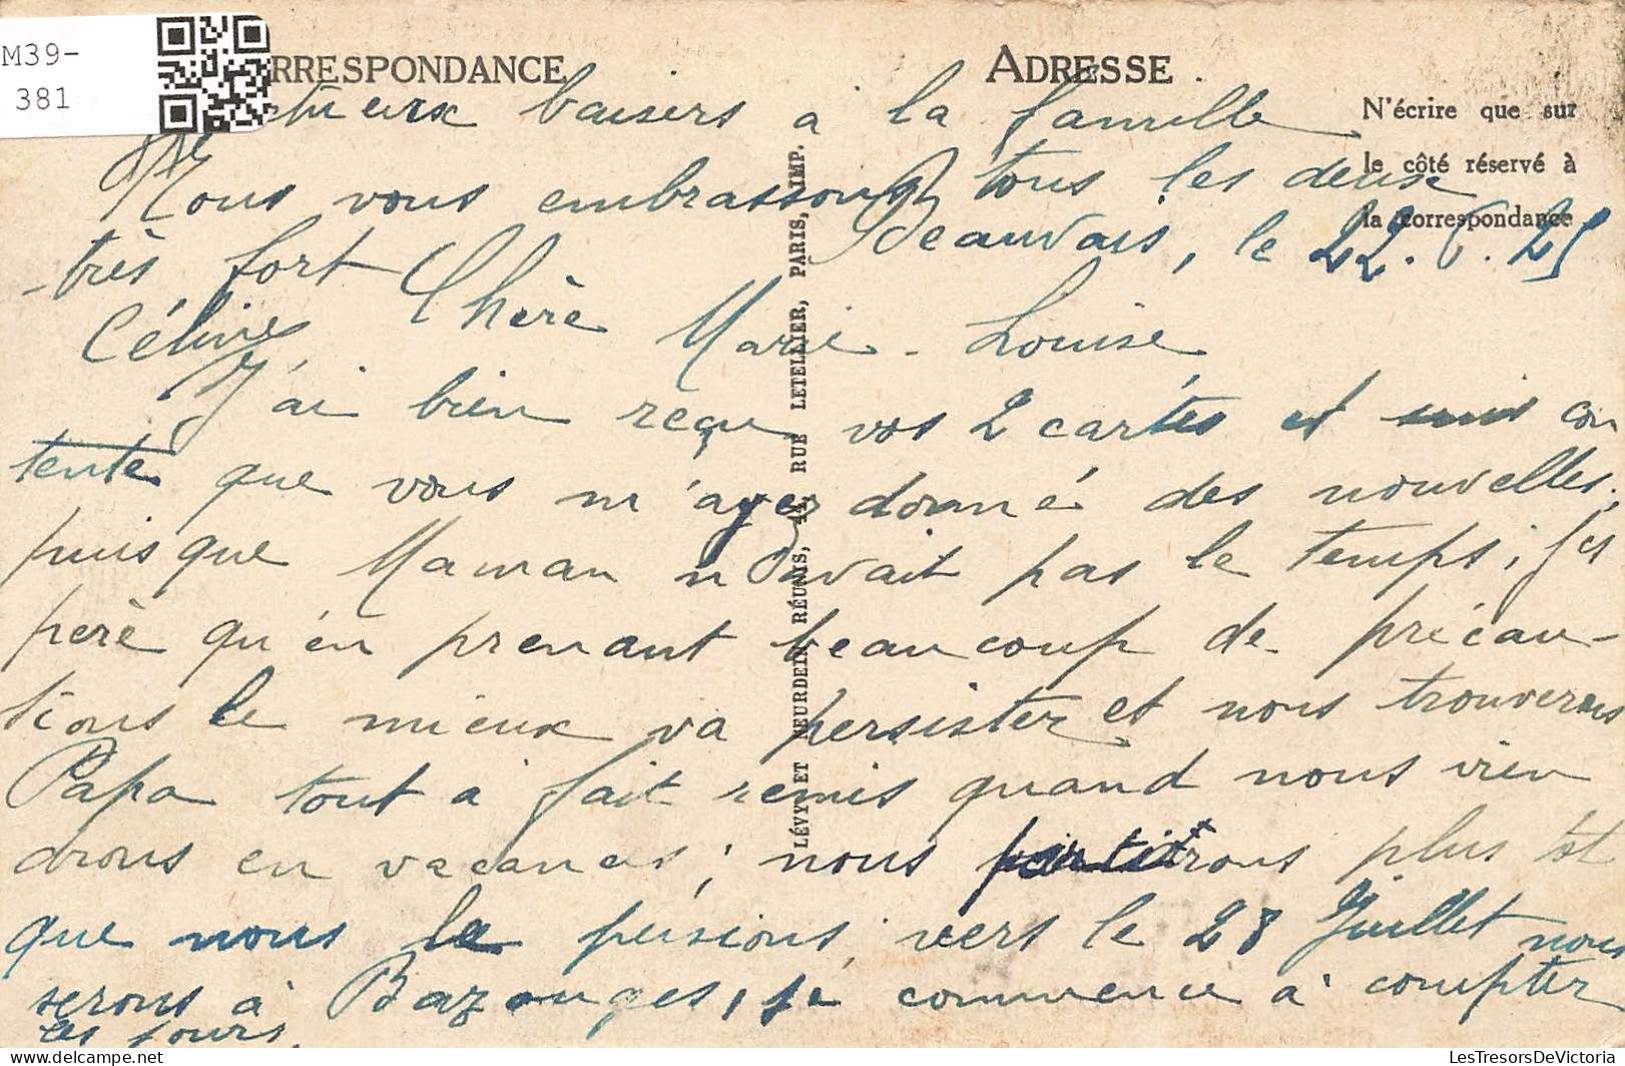 M39-
381
RRESPONDANCE
ADRESSE
N'écrire que sur
le côté réservé à
la correspondance
baisers à la famille
Nous vous embrassons tous les deux
très fort
Céline
Beauvais, le 22.6.25
Chère Marie-Louise
J'ai bien reçu vos 2 cartes et suis con
tente que vous m'ayez donné des nouvelles,
puisque Maman n'avait pas le temps; j'es
père qu'en prenant beaucoup de précau-
tions le mieux va persister et nous trouverons
Papa tout à fait remis quand nous vien
drons en vacances; nous partirons plus tôt
que nous le pensions, vers le 28 Juillet nous
serons à Bazouges, je commence à compter
les jours.
LÉVY ET NEURDEIN RÉUNIS, 44, RUE LETELLIER, PARIS, IMP.
LesTresorsDeVictoria